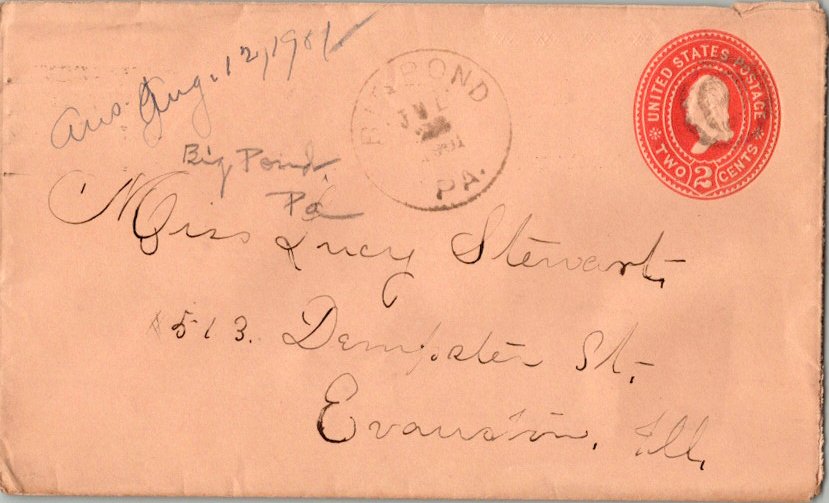 Ans. Aug. 12, 1901
BIG POND
JUL
1901
PA.
UNITED STATES POSTAGE
TWO 2 CENTS
Big Pond,
Pa
Miss Lucy Stewart,
513. Dempster St.
Evanston, Ill.